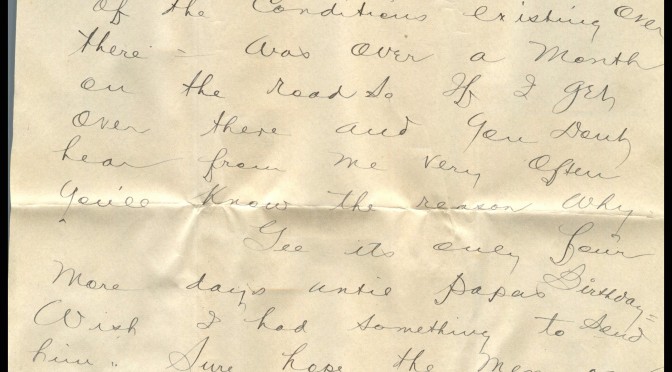 of the Conditions existing over
there - was over a Month
on the road so If I get
over there and you Dont
hear from me very often
you'll Know the reason why
Gee its only four
More days until papas Birthday=
Wish I had something to send
him. Sure hope the Men